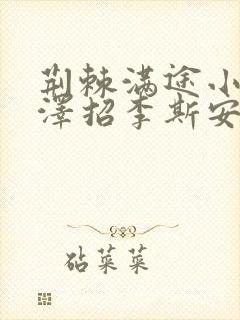 荆棘满途小
泽招李斯安
砧菜菜